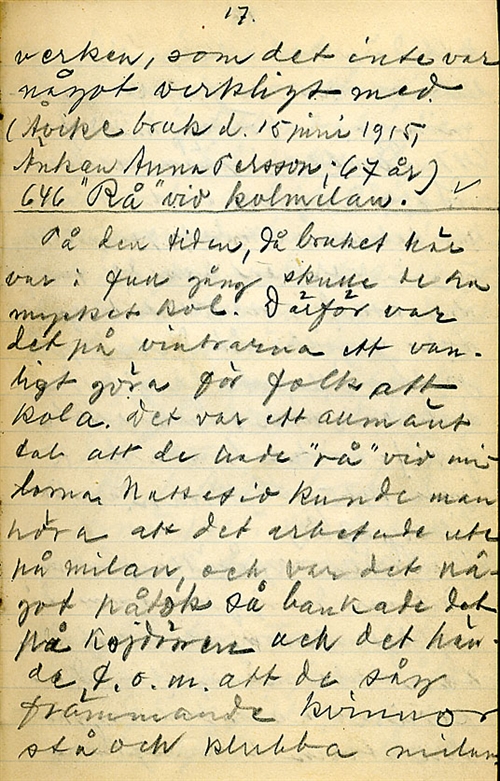 17.
verken, som det inte var
något verkligt med.
(Åvike bruk d. 15 juni 1915,
Änkan Anna Persson; 67 år)
646 "Rå" vid kolmilan. ✓
På den tiden, då bruket här
var i full gång skulle de ha
mycket kol. Därför var
det på vintrarna ett van-
ligt göra för folk att
kola. Det var ett allmänt
tal att de hade "rå" vid mi-
lorna. Nattetid kunde man
höra att det arbetade ute
på milan, och var det nå-
got påtök så bankade det
på kojdörren och det hän-
de t. o. m. att de såg
främmande kvinnor
stå och klubba milan